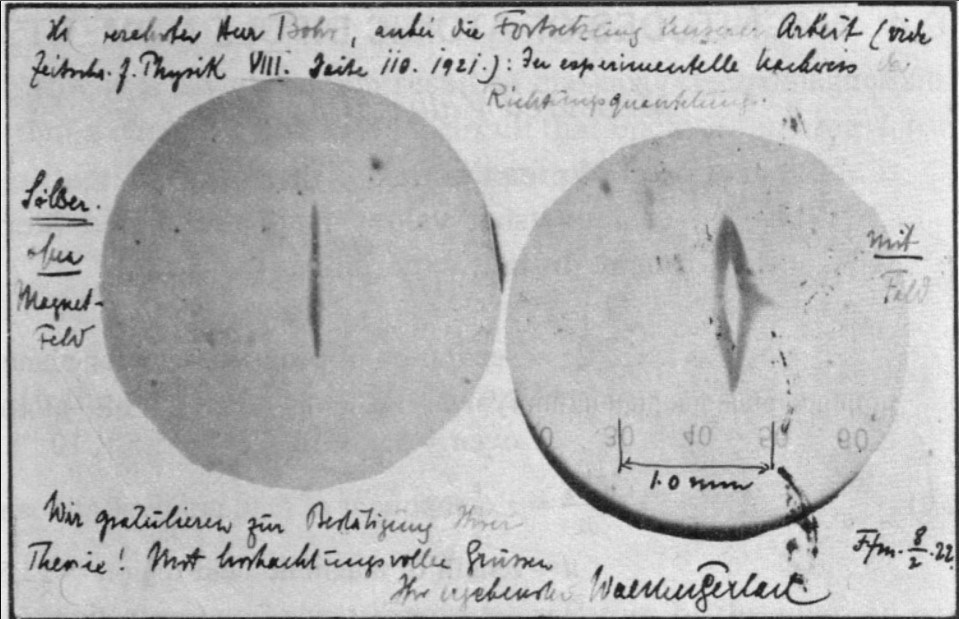 verehrter Herr Bohr, anbei die Fortsetzung unserer Arbeit (vide
Zeitschr. f. Physik VIII. Seite 110. 1921.): Der experimentelle Nachweis der
Richtungsquantelung.
Silber.
ohne
Magnet-
Feld
mit
Feld
0 30 40 50 60
1.0 mm
Wir gratulieren zur Bestätigung Ihrer
Theorie! Mit hochachtungsvollen Grüssen
Ihr ergebenster Walther Gerlach.
Ffm. 8/2. 22.